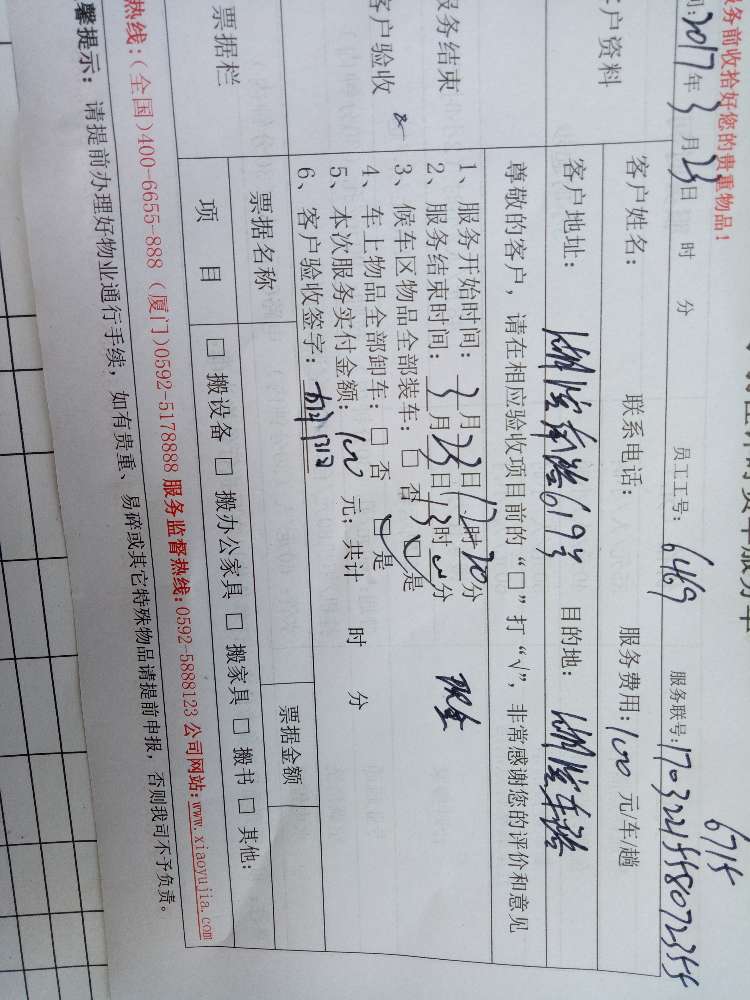 务前收拾好您的贵重物品！
间:2017年3月23日 时 分 员工工号: 6469 服务联号:
6714
客户资料
客户姓名: 联系电话: 服务费用:100 元/车/趟
客户地址: 619号 目的地:
尊敬的客户，请在相应验收项目前的“□”打“√”，非常感谢您的评价和意见
服务结束
客户验收
1、服务开始时间: 3月23日12时20分
2、服务结束时间: 3月23日13时 分 现金
3、候车区物品全部装车: □ 否 ☑ 是
4、车上物品全部卸车: □ 否 ☑ 是
5、本次服务实付金额: 100 元; 共计 时 分
6、客户验收签字:
票据栏
票据名称 票据金额
项 目 □ 搬设备 □ 搬办公家具 □ 搬家具 □ 搬书 □ 其他:
热线:(全国)400-6655-888 (厦门)0592-5178888 服务监督热线:0592-5888123 公司网站:www.xiaoyujia.com
馨提示: 请提前办理好物业通行手续，如有贵重、易碎或其它特殊物品请提前申报，否则我司不予负责。